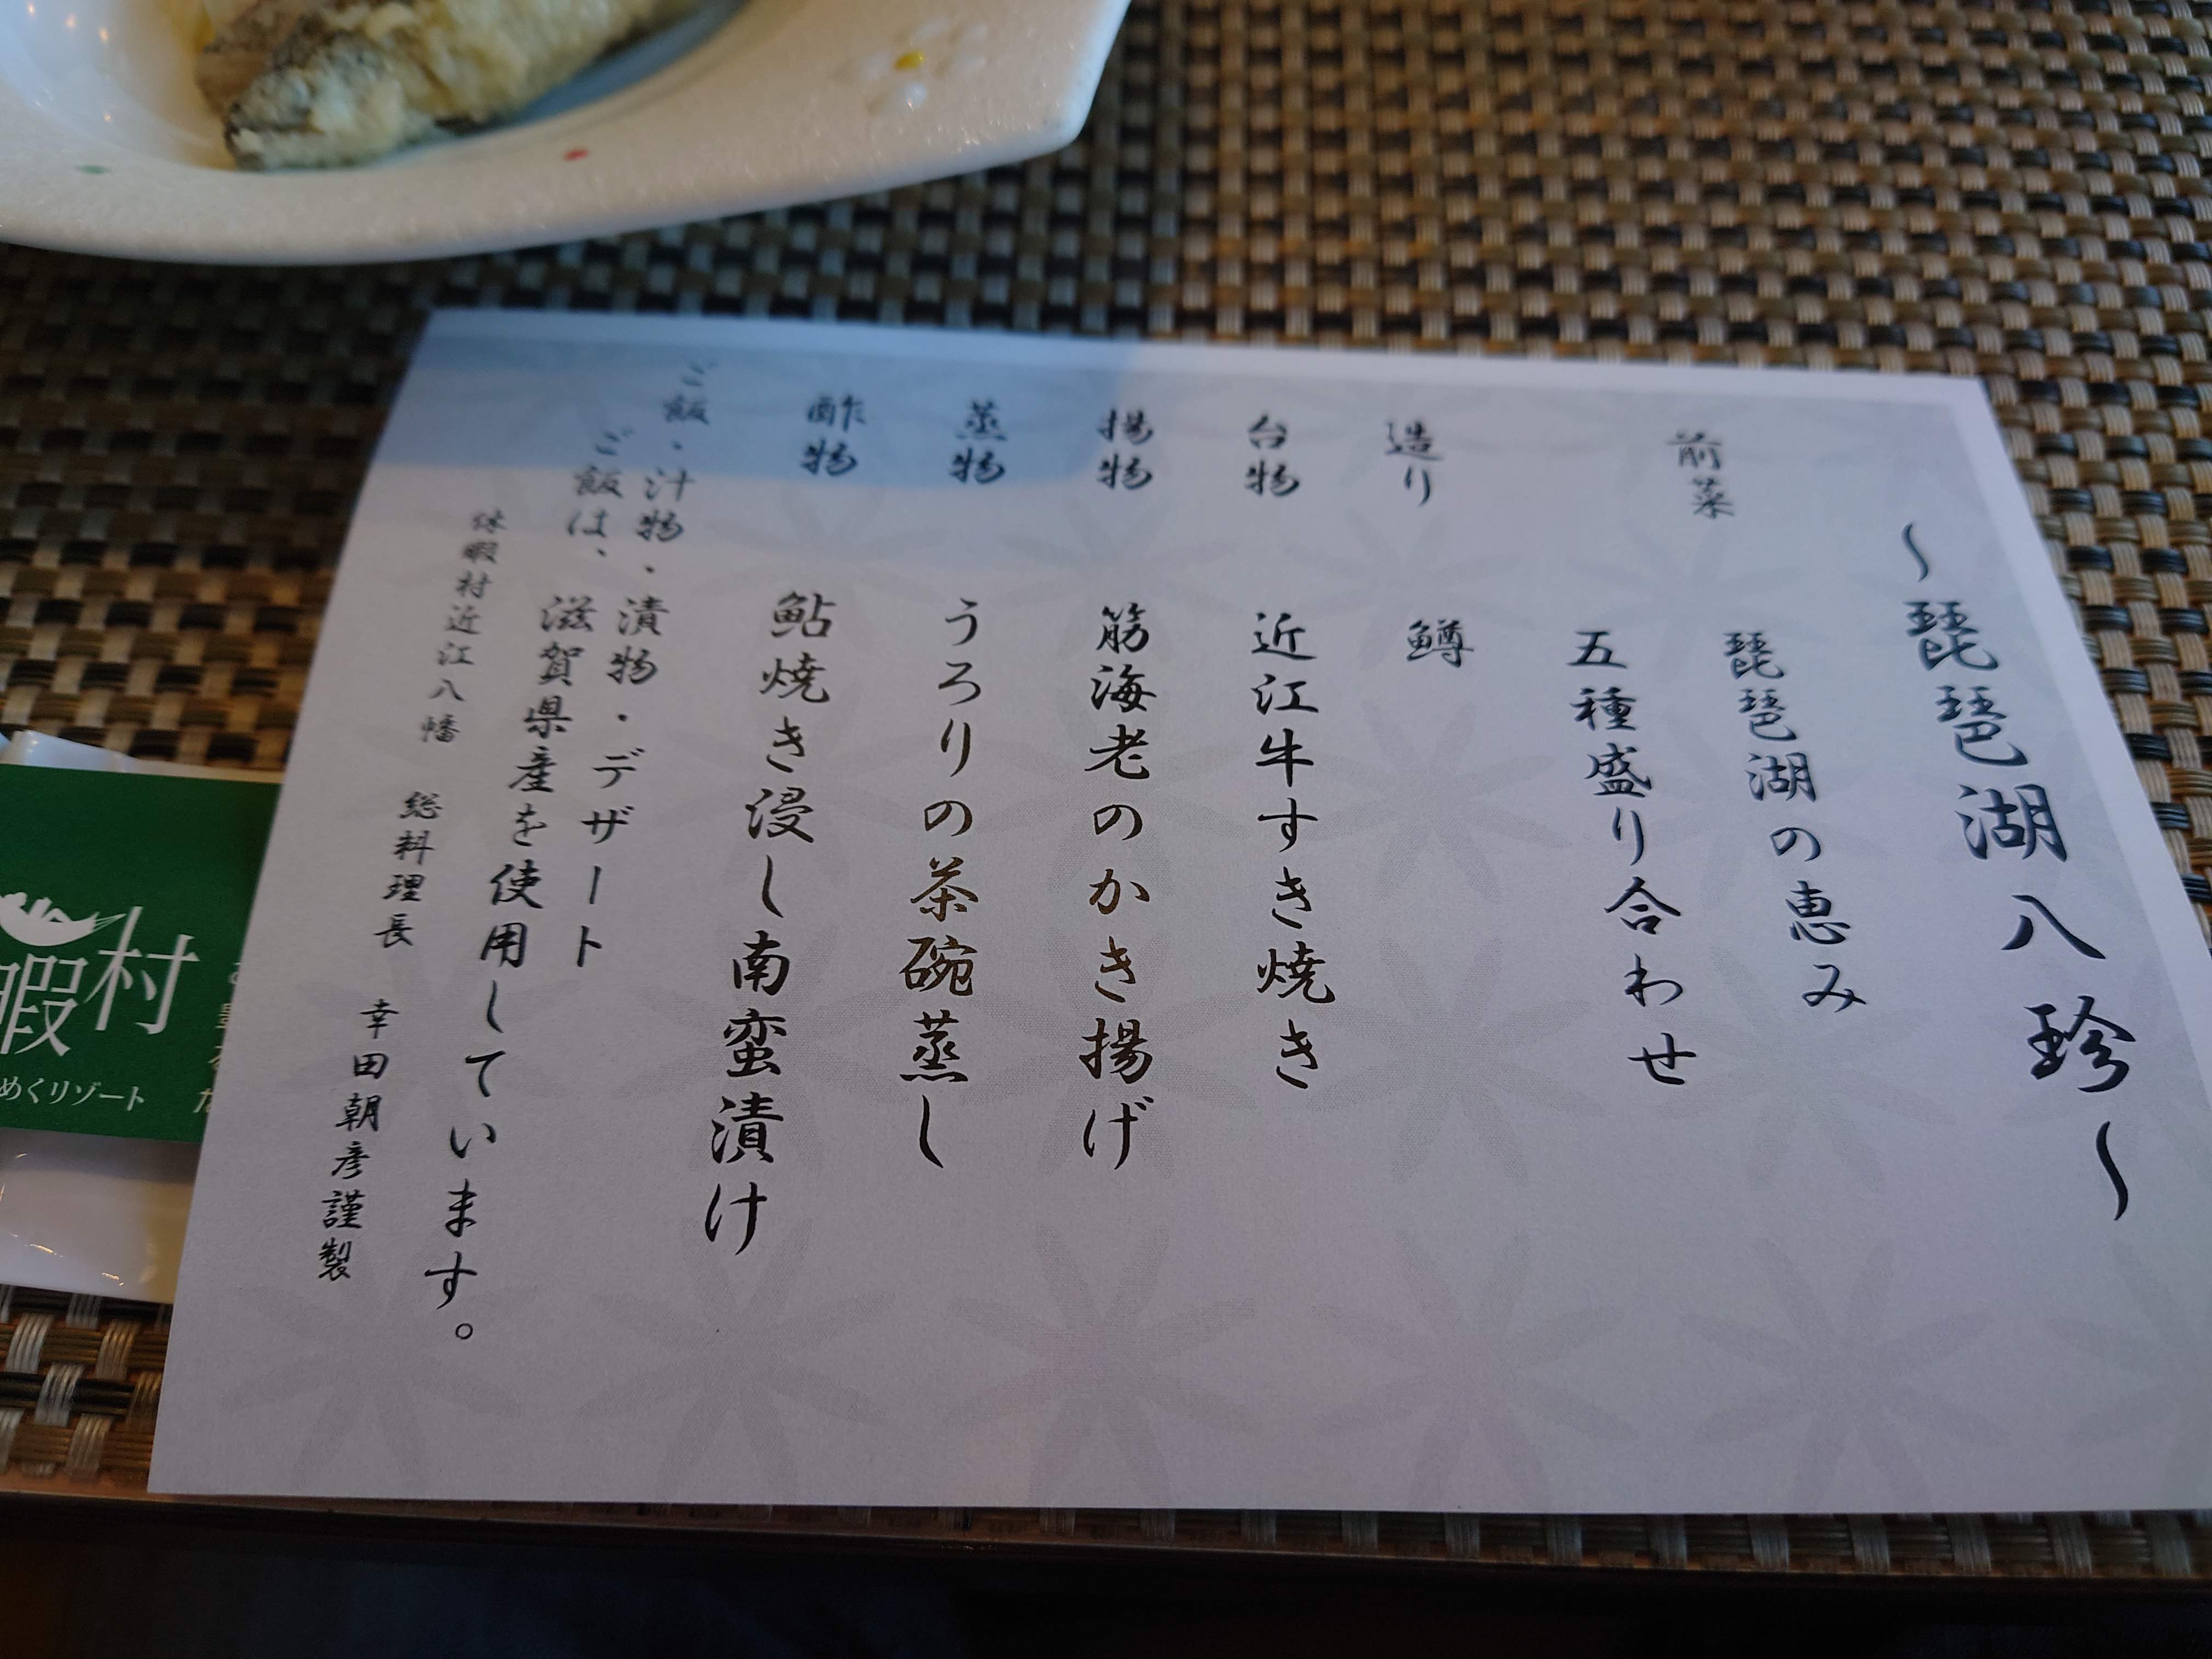 〜琵琶湖八珍〜
前菜　琵琶湖の恵み
五種盛り合わせ
造り　鱒
台物　近江牛すき焼き
揚物　筋海老のかき揚げ
蒸物　うろりの茶碗蒸し
酢物　鮎焼き浸し南蛮漬け
ご飯・汁物、漬物・デザート
ご飯は、滋賀県産を使用しています。
休暇村近江八幡　総料理長　幸田朝彦謹製
暇村
めくリゾート